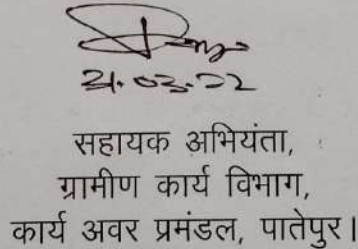 सहायक अभियंता,
ग्रामीण कार्य विभाग,
कार्य अवर प्रमंडल, पातेपुर।